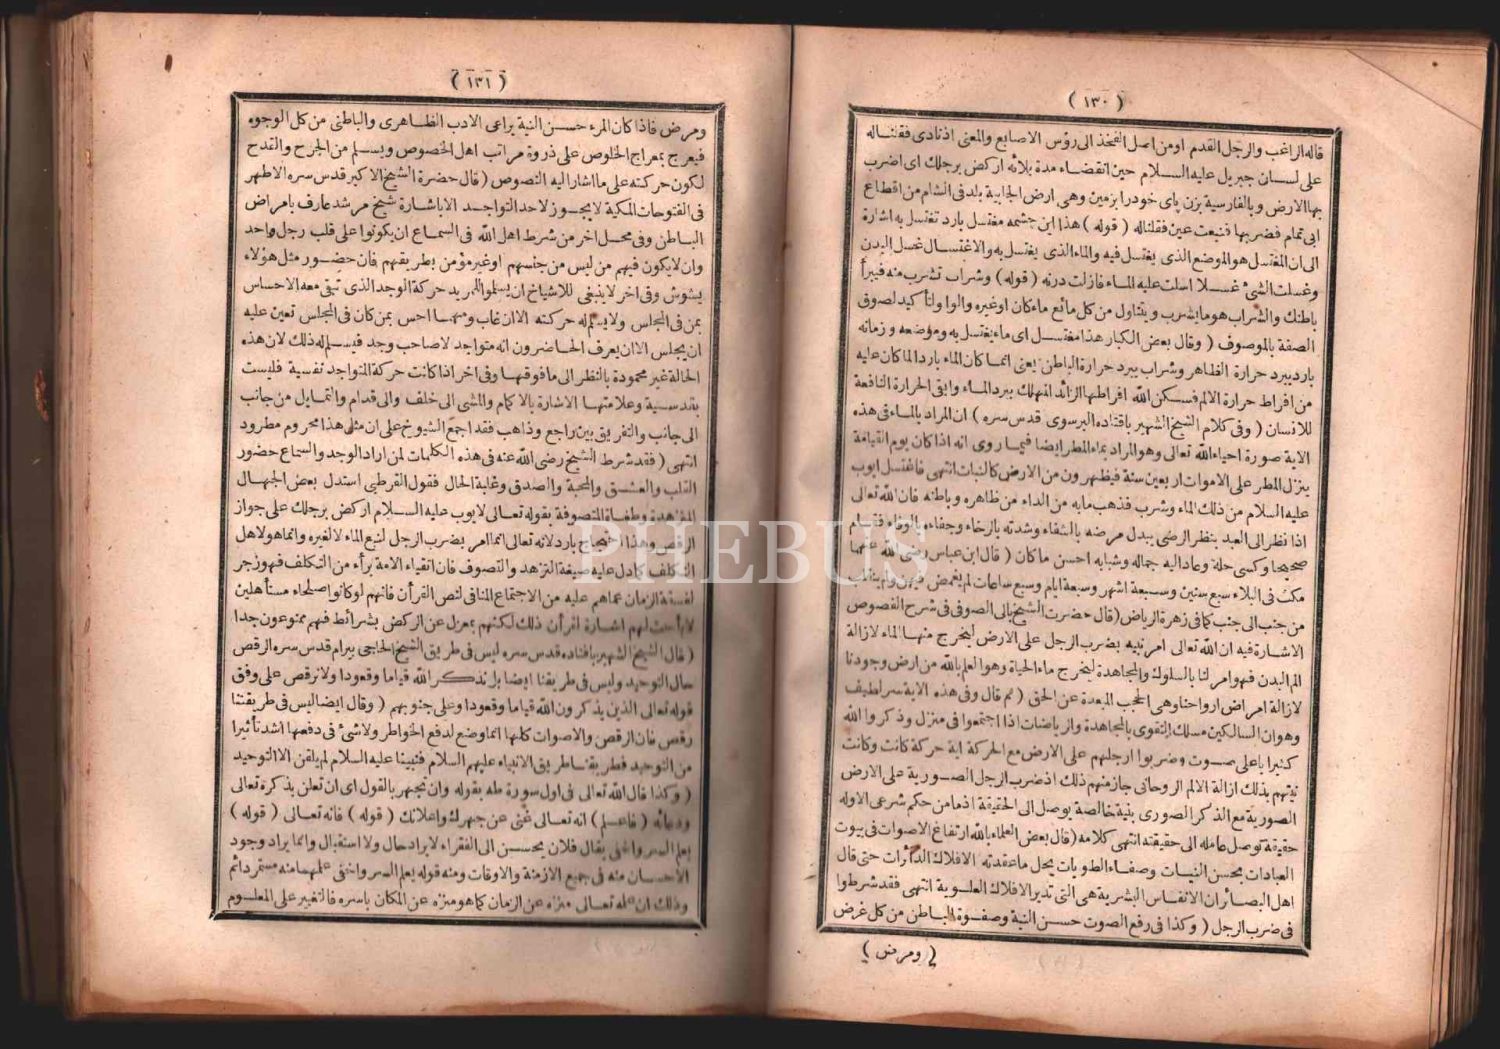 ( ١٣٠ )
قاله الراغب والرجل القدم او من اصل الفخذ الى رؤس الاصابع والمعنى اذ نادى فقلنا له
على لسان جبريل عليه السلام حين انقضاء مدة بلائه اركض برجلك اى اضرب
بها الارض وبالفارسية بزن پاى خودرا بزمين وهى ارض الجابية بلد فى الشام من اقطاع
ابى تمام فضربها فنبعت عين فقلنا له ( قوله ) هذا اين چشمه مغتسل بارد تغتسل به اشارة
الى ان المغتسل هو الموضع الذى يغتسل فيه والماء الذى يغتسل به والاغتسال غسل البدن
وغسلت الشئ غسلا اسلت عليه الماء فازلت درنه ( قوله ) وشراب تشرب منه فيبرأ
باطنك والشراب هو ما يشرب ويتناول من كل مائع ماء كان او غيره والواو لتأكيد لصوق
الصفة بالموصوف ( وقال بعض الكبار هذا مغتسل اى ماء يغتسل به وموضعه وزمانه
بارد يبرد حرارة الظاهر وشراب يبرد حرارة الباطن يعنى انما كان الماء باردا لما كان عليه
من افراط حرارة الالم فسكن الله افراطها الزائد المهلك ببرد الماء وابقى الحرارة النافعة
للانسان ( وفى كلام الشيخ الشهير بافتاده البرسوى قدس سره ) ان المراد بالماء فى هذه
الاية صورة احياء الله تعالى وهو المراد بماء المطر ايضا فيما روى انه اذا كان يوم القيامة
ينزل المطر على الاموات اربعين سنة فيظهرون من الارض كالنبات انتهى فاغتسل ايوب
عليه السلام من ذلك الماء وشرب فذهب ما به من الداء من ظاهره وباطنه فان الله تعالى
اذا نظر الى العبد بنظر الرضى يبدل مرضه بالشفاء وشدته بالرخاء وجفاءه بالوفاء فقام
صحيحا وكسى حلة وعاد اليه جماله وشبابه احسن ما كان ( قال ابن عباس رضى الله عنهما
مكث فى البلاء سبع سنين وسبعة اشهر وسبعة ايام وسبع ساعات لم يغمض فيهن ولم ينقلب
من جنب الى جنب كما فى زهرة الرياض ( قال حضرت الشيخ بالى الصوفى فى شرح الفصوص
الاشارة فيه ان الله تعالى امر نبيه بضرب الرجل على الارض ليخرج منها الماء لازالة
الم البدن فهو امر لنا بالسلوك والمجاهدة ليخرج ماء الحياة وهو العلم بالله من ارض وجودنا
لازالة امراض ارواحنا وهى الحجب المبعدة عن الحق ( ثم قال وفى هذه الاية سر لطيف
وهو ان السالكين مسلك التقوى بالمجاهدة والرياضات اذا اجتمعوا فى منزل وذكروا الله
كثيرا باعلى صوت وضربوا ارجلهم على الارض مع الحركة اية حركة كانت وكانت
نيتهم بذلك ازالة الالم الروحانى جاز منهم ذلك اذ ضرب الرجل الصورية على الارض
الصورية مع الذكر الصورى بنية خالصة يوصل الى الحقيقة اذ ما من حكم شرعى الا وله
حقيقة توصل عامله الى حقيقته انتهى كلامه ( قال بعض العلماء بالله ارتفاع الاصوات فى بيوت
العبادات بحسن النيات وصفاء الطويات يحل ما عقدته الافلاك الدائرات حتى قال
اهل البصائر ان الانفاس البشرية هى التى تدير الافلاك العلوية انتهى فقد شرطوا
فى ضرب الرجل ( وكذا فى رفع الصوت حسن النية وصفوة الباطن من كل غرض
( ومرض )
( ١٣١ )
ومرض فاذا كان المرء حسن النية يراعى الادب الظاهرى والباطنى من كل الوجوه
فيعرج بمعراج الخلوص على ذروة مراتب اهل الخصوص ويسلم من الجرح والقدح
لكون حركته على ما اشار اليه النصوص ( قال حضرة الشيخ الاكبر قدس سره الاطهر
فى الفتوحات المكية لا يجوز لاحد التواجد الا باشارة شيخ مرشد عارف بامراض
الباطن وفى محل اخر من شرط اهل الله فى السماع ان يكونوا على قلب رجل واحد
وان لا يكون فيهم من ليس من جنسهم او غير مؤمن بطريقهم فان حضور مثل هؤلاء
يشوش وفى اخر لا ينبغى للاشياخ ان يسلموا للمريد حركة الوجد الذى تبقى معه الاحساس
بمن فى المجلس ولا يسلم له حركته الا ان غاب ومهما احس بمن كان فى المجلس تعين عليه
ان يجلس الا ان يعرف الحاضرون انه متواجد لا صاحب وجد فيسلم له ذلك لان هذه
الحالة غير محمودة بالنظر الى ما فوقها وفى اخر اذا كانت حركة المتواجد نفسية فليست
بقدسية وعلامتها الاشارة بالاكمام والمشى الى خلف والى قدام والتمايل من جانب
الى جانب والتفريق بين راجع وذاهب فقد اجمع الشيوخ على ان مثل هذا محروم مطرود
انتهى ( فقد شرط الشيخ رضى الله عنه فى هذه الكلمات لمن اراد الوجد والسماع حضور
القلب والعشق والمحبة والصدق وغلبة الحال فقول القرطبى استدل بعض الجهال
المتزهدة وطغاة المتصوفة بقوله تعالى لايوب عليه السلام اركض برجلك على جواز
الرقص وهذا احتجاج بارد لانه تعالى انما امر بضرب الرجل لنبع الماء لا لغيره وانما هو لاهل
التكلف كما دل عليه صيغة التزهد والتصوف فان اتقياء الامة برآء من التكلف فهو زجر
لفسقة الزمان عما هم عليه من الاجتماع المنافى لنص القرأن فانهم لو كانوا صلحاء مستأهلين
لابأحت لهم اشارة القرأن ذلك لكنهم بمعزل عن الركض بشرائط فهم ممنوعون جدا
( قال الشيخ الشهير بافتاده قدس سره ليس فى طريق الشيخ الحاجى بيرام قدس سره الرقص
حال التوحيد وليس فى طريقنا ايضا بل نذكر الله قياما وقعودا ولا نرقص على وفق
قوله تعالى الذين يذكرون الله قياما وقعودا وعلى جنوبهم ( وقال ايضا ليس فى طريقتنا
رقص فان الرقص والاصوات كلها انما وضع لدفع الخواطر ولا شئ فى دفعها اشد تأثيرا
من التوحيد فطريقنا طريق الانبياء عليهم السلام فنبينا عليه السلام لم يلقن الا التوحيد
( وكذا قال الله تعالى فى اول سورة طه بقوله وان تجهر بالقول اى ان تعلن بذكره تعالى
ودعائه ( فاعلم ) انه تعالى غنى عن جهرك واعلانك ( قوله ) فانه تعالى ( قوله )
يعلم السر واخفى يقال فلان يحسن الى الفقراء لا يراد حال ولا استقبال وانما يراد وجود
الاحسان منه فى جميع الازمنة والاوقات ومنه قوله يعلم السر واخفى علمهما منه مستمر دائم
وذلك ان علمه تعالى منزه عن الزمان كما هو منزه عن المكان باسره فالتغيير على المعلوم
PHEBUS